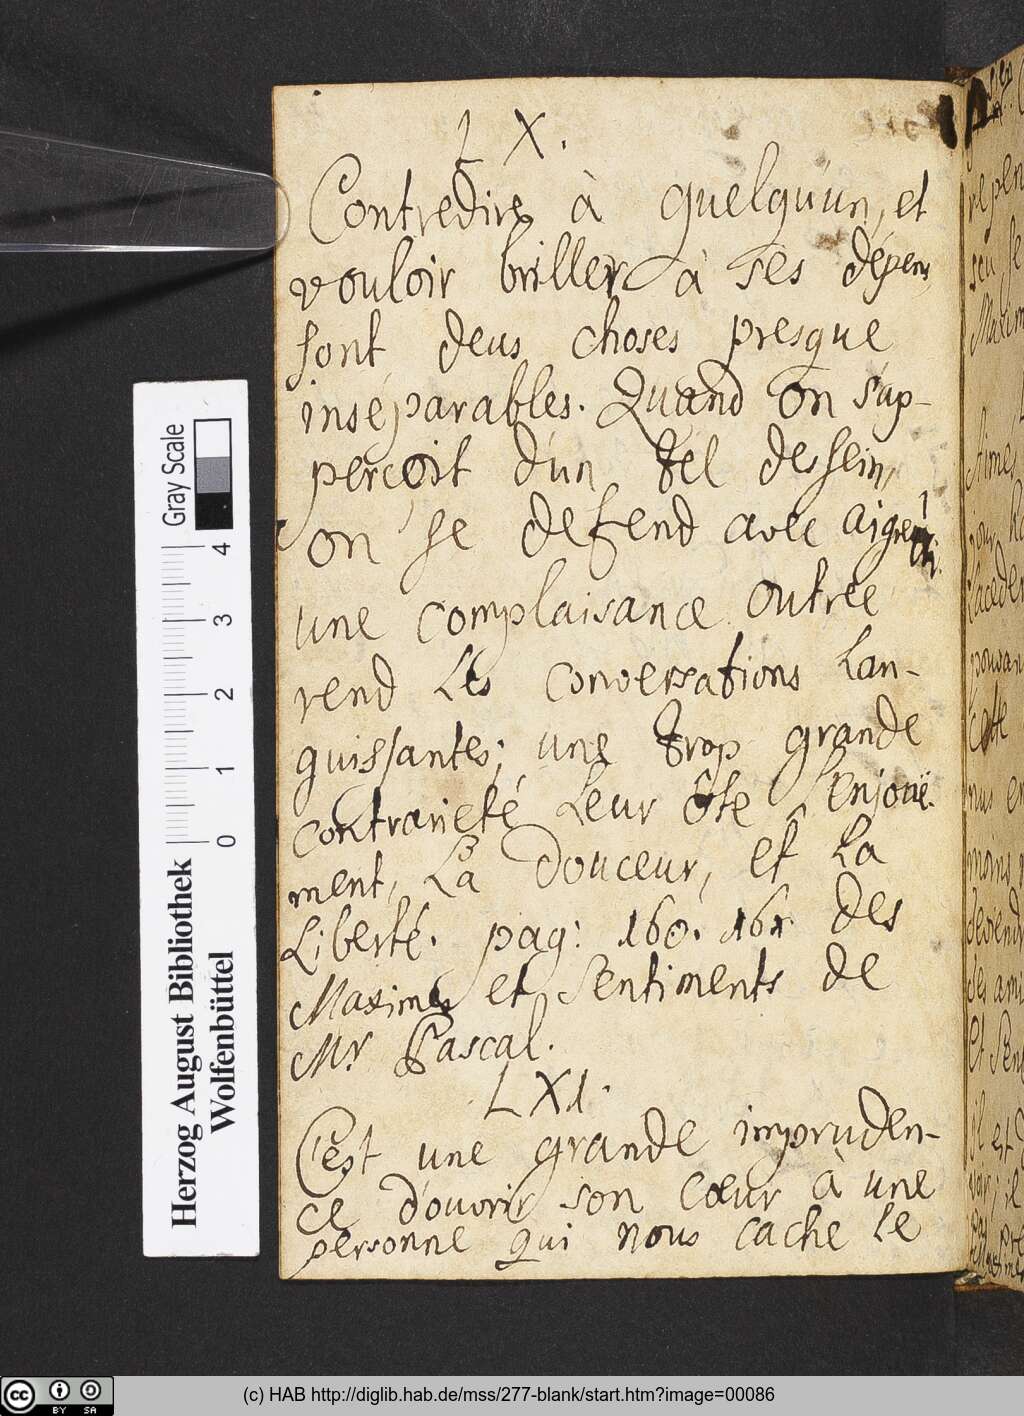 L X.
Contredire à quelqu'un, et
vouloir briller à ses dépens,
sont deus choses presque
inséparables. Quand on s'ap-
perçoit d'un tel dessein,
on se defend avec aigreur.
une complaisance outrée
rend les conversations lan-
guissantes; une trop grande
contrarieté leur ôte l'enjouë-
ment, la douceur, et la
Liberté. pag: 160. 161. des
Maximes et Sentiments de
Mr Pascal.
L X I.
C'est une grande impruden-
ce d'ouvrir son cœur à une
personne qui nous cache le
Gray Scale
0 1 2 3 4
Herzog August Bibliothek
Wolfenbüttel
cc BY SA
(c) HAB http://diglib.hab.de/mss/277-blank/start.htm?image=00086